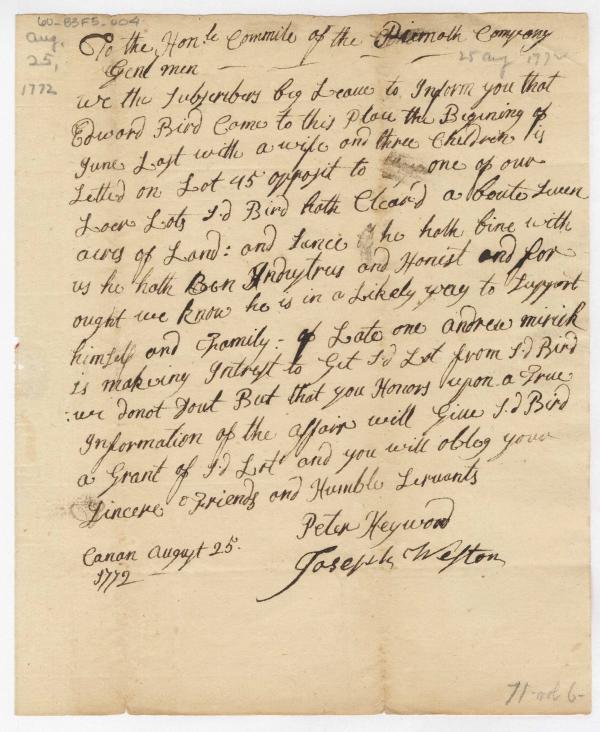 60-B3F5-004
Aug.
25,
1772
To the Hon:le Commite of the Plimoth Company
25 Aug 1772
Gentmen
we the Subscribers beg Leave to Inform you that
Edward Bird Came to this Place the Begining of
June Last with a wife and three Children is
Setted on Lot 45 opposit to one of our
Loer Lots S:d Bird hath Clear'd a boute Seven
acres of Land: and Sance he hath bine with
us he hath Ben Indystrus and Honist and for
ought we know he is in a Likely way to Support
himself and Family: of Late one andrew mirick
is makeing Intrest to Get S:d Lot from S:d Bird
we donot Dout But that you Honors upon a True
Information of the affair will Give S:d Bird
a Grant of S:d Lot and you will obleg your
Sincere Friends and Humble Servants
Peter Heywood
Canan August 25.
1772
Joseph Weston
71-vol 6-